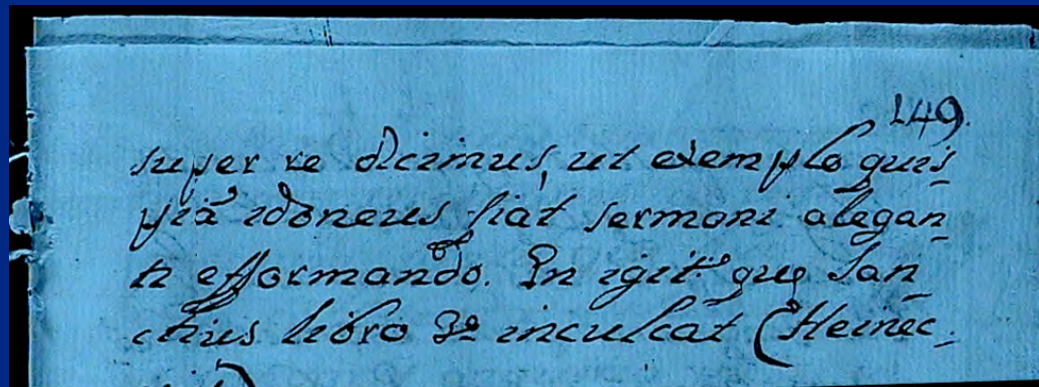 149.
super re dicimus, ut exemplo quis-
piã idoneus fiat sermoni alegan-
ti efformando. En igit^r quę San-
chius libro 3º inculcat (Heinec-